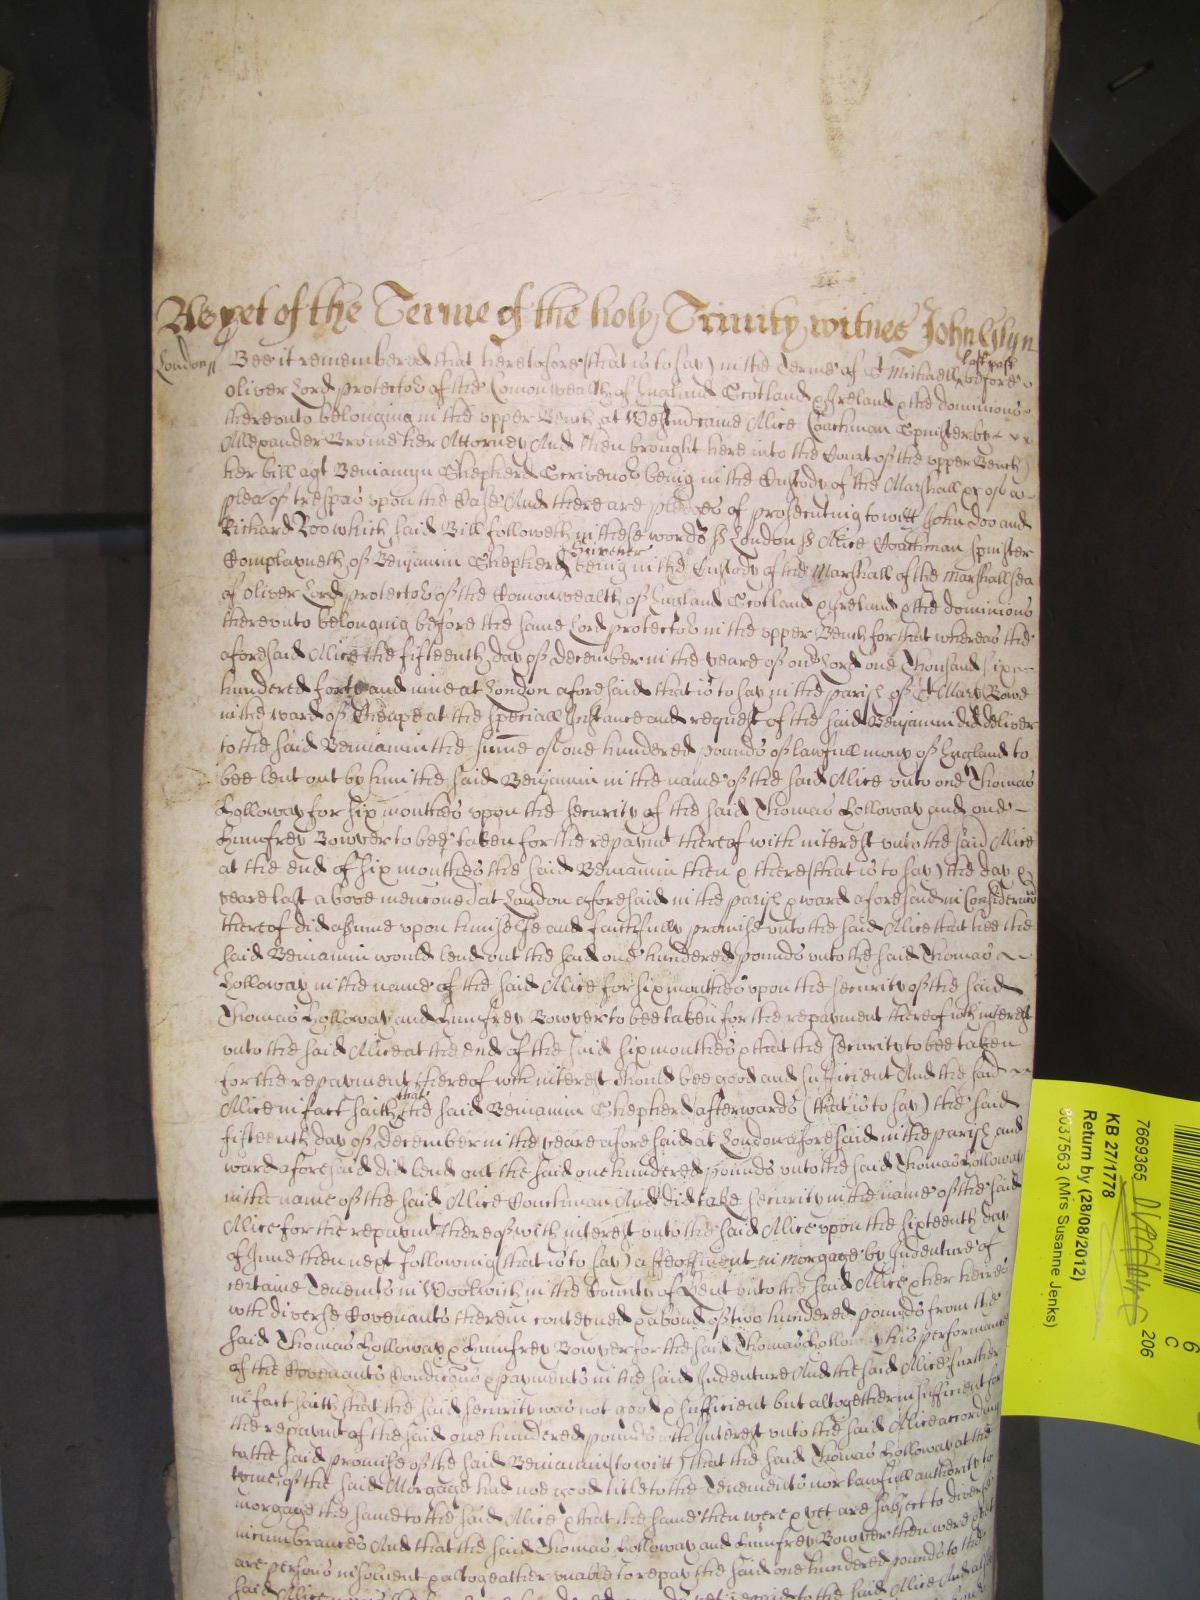 As yet of the Terme of the holy Trinity witnes John Glyn
London ss Bee it remembered that heretofore (that is to say) in the Terme of St Michaell last past before
Oliver Lord protector of the Comonwealth of England Scotland & Ireland & the dominions
thereunto belonging in the upper Bench at Westmr came Alice Coachman Spinster by
Alexander Brome her Attorney And then brought here into the Court of the upper Bench
her bill agt Beniamyn Shepherd Scrivenor being in the Custody of the Marshall &c of a
plea of trespas upon the Case And there are pledges of prosecuting to witt John Doo and
Richard Roo which said Bill followeth in these words ss London ss Alice Coachman spinster
Complayneth of Benjamin Shepherd Scrivener being in the Custody of the Marshall of the Marshallsea
of Oliver Lord protector of the Comonwealth of England Scotland & Ireland & the dominions
thereunto belonging before the same Lord protector in the upper Bench for that whereas the
aforesaid Alice the fifteenth day of December in the yeare of our Lord one Thousand six
hundered forty and nine at London aforesaid that is to say in the parish of St Mary Bowe
in the ward of Cheape at the speciall Instance and request of the said Benjamin did deliver
to the said Beniamin the summe of one hundered pounds of lawfull mony of England to
bee lent out by him the said Benjamin in the name of the said Alice unto one Thomas
Holloway for six monthes upon the security of the said Thomas Holloway and one
Humfrey Bowyer to bee taken for the repaymt thereof with interest unto the said Alice
at the end of six monthes the said Beniamin then & there (that is to say) the day &
yeare last above menconed at London aforesaid in the parish & ward aforesaid in Consideracon
thereof did assume upon himselfe and faithfully promise unto the said Alice that hee the
said Beniamin would lend out the said one hundered pounds unto the said Thomas
Holloway in the name of the said Alice for six monthes upon the security of the said
Thomas Holloway and Humfrey Bowyer to bee taken for the repayment thereof wth interest
unto the said Alice at the end of the said six monthes & that the security to bee taken
for the repayment thereof with interest should bee good and sufficient And the said
Alice in fact saith that the said Beniamin Shepherd afterwards (that is to say) the said
fifteenth day of December in the yeare aforesaid at London aforesaid in the parish and
ward aforesaid did lend out the said one hundered pounds unto the said Thomas Holloway
in the name of the said Alice Coachman And did take security in the name of the said
Alice for the repaymt thereof with interest unto the said Alice upon the sixteenth day
of June then next following (that is to say) a feoffment in morgage by Indenture of
certaine Tenemts in Woolwich in the County of Kent unto the said Alice & her heires
with diverse Covenants therein conteyned & a bond of two hundered pounds from the
said Thomas Holloway & Humfrey Bowyer for the said Thomas Holloway his performance
of the Covenants Condicons & payments in the said Indenture And the said Alice further
in fact saith that the said security was not good & sufficient but altogether insufficient for
the repaymt of the said one hundered pounds with Interest unto the said Alice according
to the said promise of the said Beniamin (to witt) that the said Thomas Holloway at the
tyme of the said Morgage had noe good title to the Tenements nor lawfull authority to
morgage the same to the said Alice & that the same then were & yet are subject to diverse
incumbrances And that the said Thomas Holloway and Humfrey Bowyer then were & yet
are persons insolvent & altogeather unable to repay the said one hundered pounds to the
said Alice
7669365
206
KB 27/1778
Return by (28/08/2012)
6037563 (Mrs Susanne Jenks)
6
C